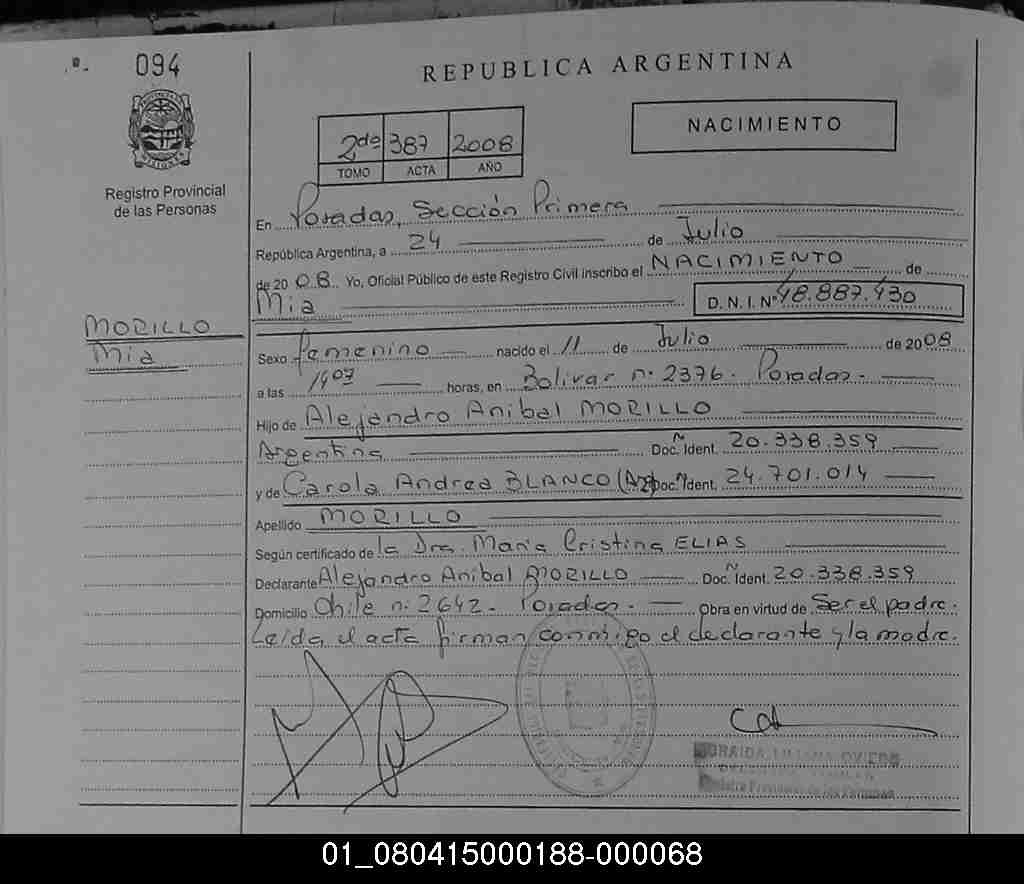 094
REPUBLICA ARGENTINA
NACIMIENTO
2do 387 2008
TOMO ACTA AÑO
Registro Provincial
de las Personas
En Posadas, Sección Primera
República Argentina, a 24 de Julio
de 2008. Yo, Oficial Público de este Registro Civil inscribo el NACIMIENTO de
Mia D.N.I. Nº 48.887.430
MORILLO
Mia
Sexo femenino nacido el 11 de Julio de 2008
a las 1407 horas, en Bolivar nº 2376. Posadas.
Hijo de Alejandro Anibal MORILLO
Argentina Doc. Ident. 20.338.359
y de Carola Andrea BLANCO (Arg) Doc. Ident. 24.701.014
Apellido MORILLO
Según certificado de la Dra. Maria Cristina ELIAS
Declarante Alejandro Anibal MORILLO Doc. Ident. 20.338.359
Domicilio Chile nº 2642. Posadas. Obra en virtud de Ser el padre.
Leída el acta firman conmigo el declarante y la madre.
LILIANA OVIEDO
Registro Provincial de las Personas
01_080415000188-000068